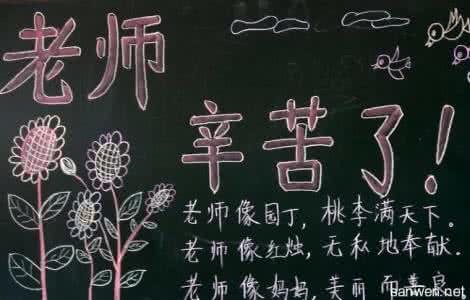 老师
辛苦了！
老师像园丁，桃李满天下。
老师像红烛，无私地奉献.
老师像妈妈，美丽而善良
sanwen.net